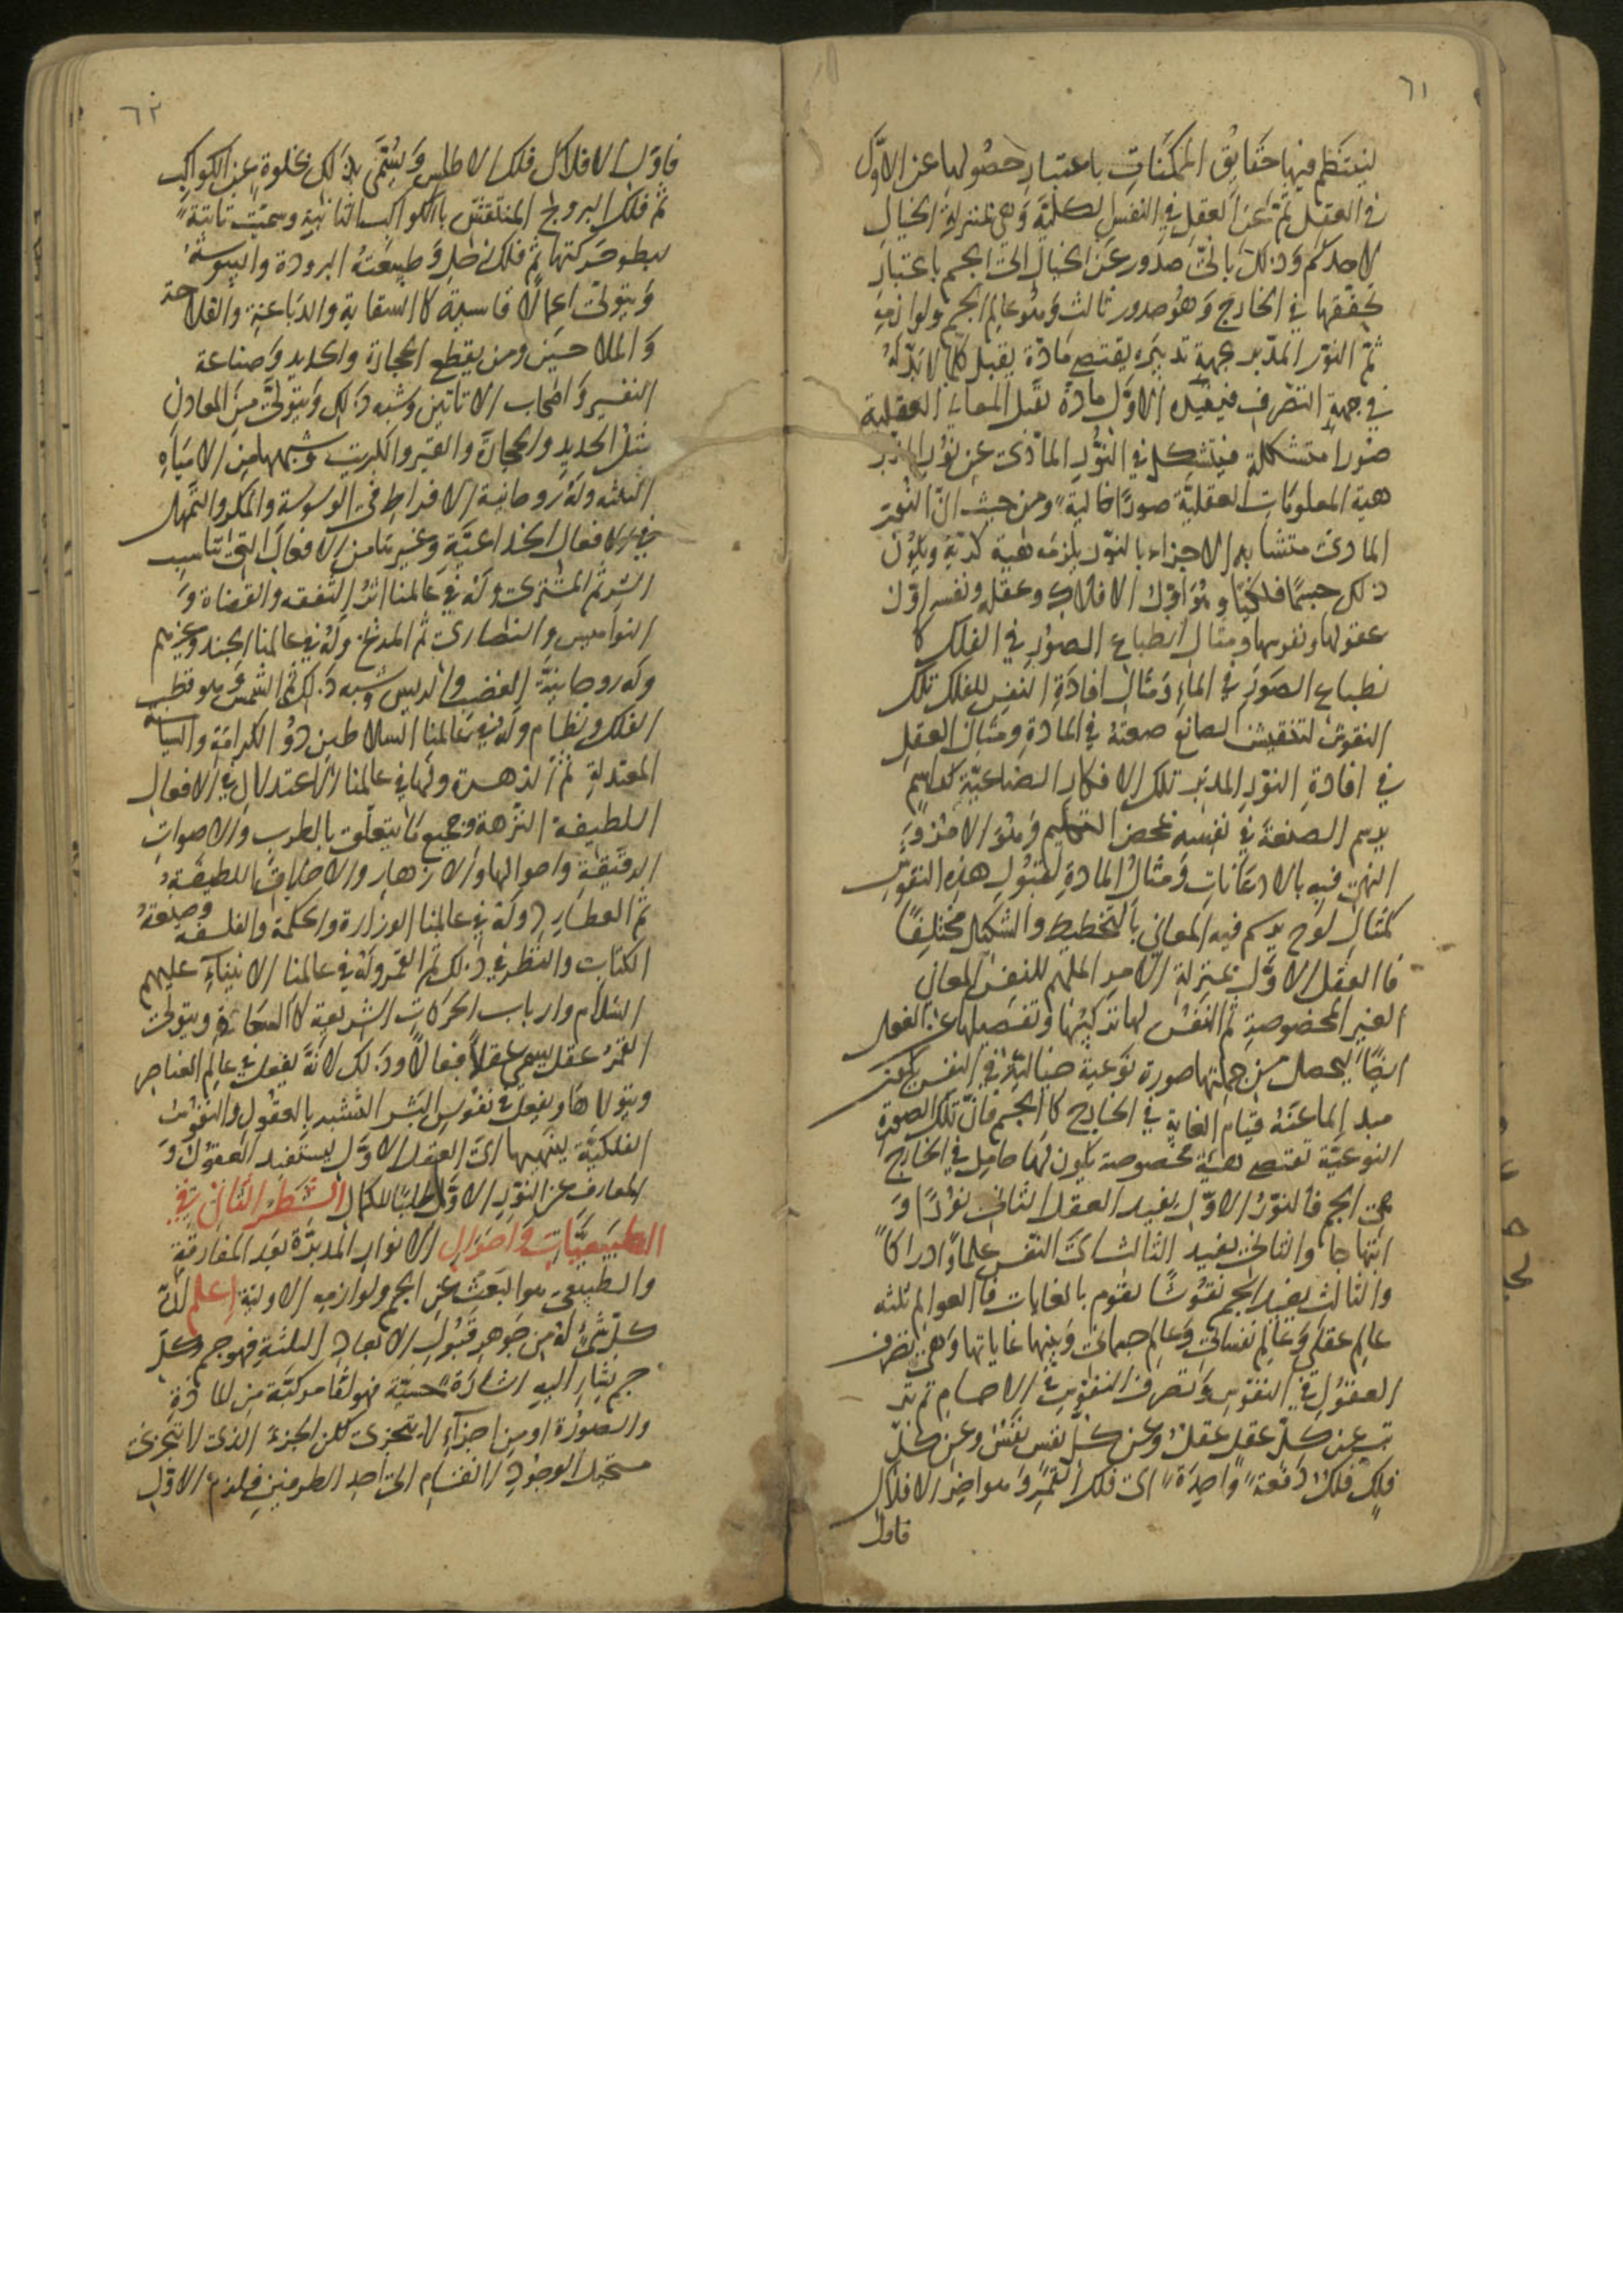 ٦١
لينتظم فيها حقايق الممكنات باعتبار حصولها عن الاوّل
في العقل ثمّ عن العقل في النفس الكلّية وهي بمنزلة الخيال
لاحدكم وذلك بالتّ صدور عن الخيال الى الجم باعتبار
تحقّقها في الخارج وهو صدور ثالث وهو عالم الجم ولوازمه
ثمّ النور المدبّر بجهة تدبيره يقتضي مادّة يقبل كلّما لا بدّ له
في جهة التصرف فيفيده الاوّل مادة تقبل المعاني العقلية
صورا متشكلة فيتشكل في النور المادّي عن نور المدبّر
هية المعلومات العقليّة صورًا خالية ومن حيث انّ النور
المادي متشابه الاجزاء بالنور يلزمه هية كريّة ويكون
ذلك جسمًا فلكيّا وهو اوّل الافلاك وعقله ونفسه اوّل
عقولها ونفوسها ومثال انطباع الصور في الفلك كا
نطباع الصور في الماء ومثال افادة النفس للفلك تلك
النقوش لتنقيش الصانع صنعته في المادة ومثال العقل
في افادة النور المدبّر تلك الافكار الصناعيّة كمعلّم
يرسم الصنعة في نفسه بمحض التعليم وهو
فيه بالادعانات ومثال المادة لقبول هذه النقوش
كمثال لوح يرسم فيه المعاني بالتخطيط والشكل مختلفًا
فالعقل الاوّل بمنزلة الامر الملهم للنفس المعاني
الغير المخصوصة ثم النفس لها تركيبها وتفصيلها عن العقل
ايضًا ليحصل من جملتها صورة نوعية خياليّة في النفس
مبدا لما عنه قيام الغاية في الخارج كالجم فانّ تلك الصورة
النوعيّة تقتضي هيئة مخصوصة يكون لها حامل في الخارج
هي الجم فالنور الاوّل يفيد العقل الثاني نورًا و
ابتهاجا والثاني يفيد الثالث اي النفس علمًا وادراكا
والثالث يفيد الجم نقوشًا يقوم بالغايات فالعوالم ثلثه
عالم عقلي وعالم نفساني وعالم جسماني وبينها غاياتها وهي تصرف
العقول في النفوس وتصرف النفوس في الاجسام ثم تر
تب عن كلّ عقل عقل وعن كلّ نفس نفس وعن كلّ
فلك فلك دفعة واحدة الى فلك القمر وهو اخير الافلاك
فاول
٦٢
فاوّل الافلاك فلك الاطلس ويسمّى بذلك لخلوه عن الكواكب
ثمّ فلك البروج المنتقش بالكواكب الثابتة وسميت ثابتة
لبطو حركتها ثم فلك زحل وطبيعته البرودة واليبوسة
ويتولّى اعمالًا قاسية كالسقاية والدباغة والفلاحة
والملاحين ومن يقطع الحجارة والحديد وصناعة
واصحاب الاتاتين وشبه ذلك ويتولّى من المعادن
مثل الحديد والحجارة والقير والكبريت وشبهها من الاشياء
الثلثه وله روحانية الافراط في الوسوسة والمكر والتّمهل
في الافعال الخداعيّة وغيرها من الافعال التي تناسب
الشر ثم المشترى وله في عالمنا اثر التفقه والقضاة و
النواميس والنصارى ثم المريخ وله في عالمنا الجند وغيرهم
وله روحانية الغضب وشبه ذلك ثم الشمس وهو قطب
الفلك ونظام وله في عالمنا السلاطين ذو الكرامة والسياسة
المعتدلة ثم الزهرة ولها في عالمنا الاعتدال في الافعال
اللطيفة النزهة وجميع ما يتعلّق بالطرب والاصوات
الرقيقة واحوالها والازهار والاخلاق اللطيفة
ثم العطارد وله في عالمنا الوزارة والحكمة والفلسفة وصنعة
الكتاب والنظر في ذلك ثم القمر وله في عالمنا الانبياء عليهم
السّلام وارباب الحركات السّريعة كالسعاة ويتولى
القمر عقل يسمى عقلًا فعالًا وذلك لانّه يفعل في عالم العناصر
ويتولاها ويفعل في نفوس البشر التشبه بالعقول والنفوس
الفلكيّة ينهيها الى العقل الاوّل ليستفيد العقول و
المعارف عن النور الاوّل طلبًا للكمال الشطر الثاني في
الطبيعيّات واحوال الانوار المدبرة بعد المفارقة
والطبيعي هو البحث عن الجم ولوازمه الاولية اعلم انّ
كلّ شيء له من جوهر قبول الابعاد الثلثة فهو جم وكلّ
جم يشار اليه اشارة حسيّة فهو امّا مركبّة من المادة
والصورة او من اجزاء لا يتجزى لكن الجزء الذي لا يتجزى
مستحيل الوجود لانقسام الى احد الطرفين فلزم الاوّل